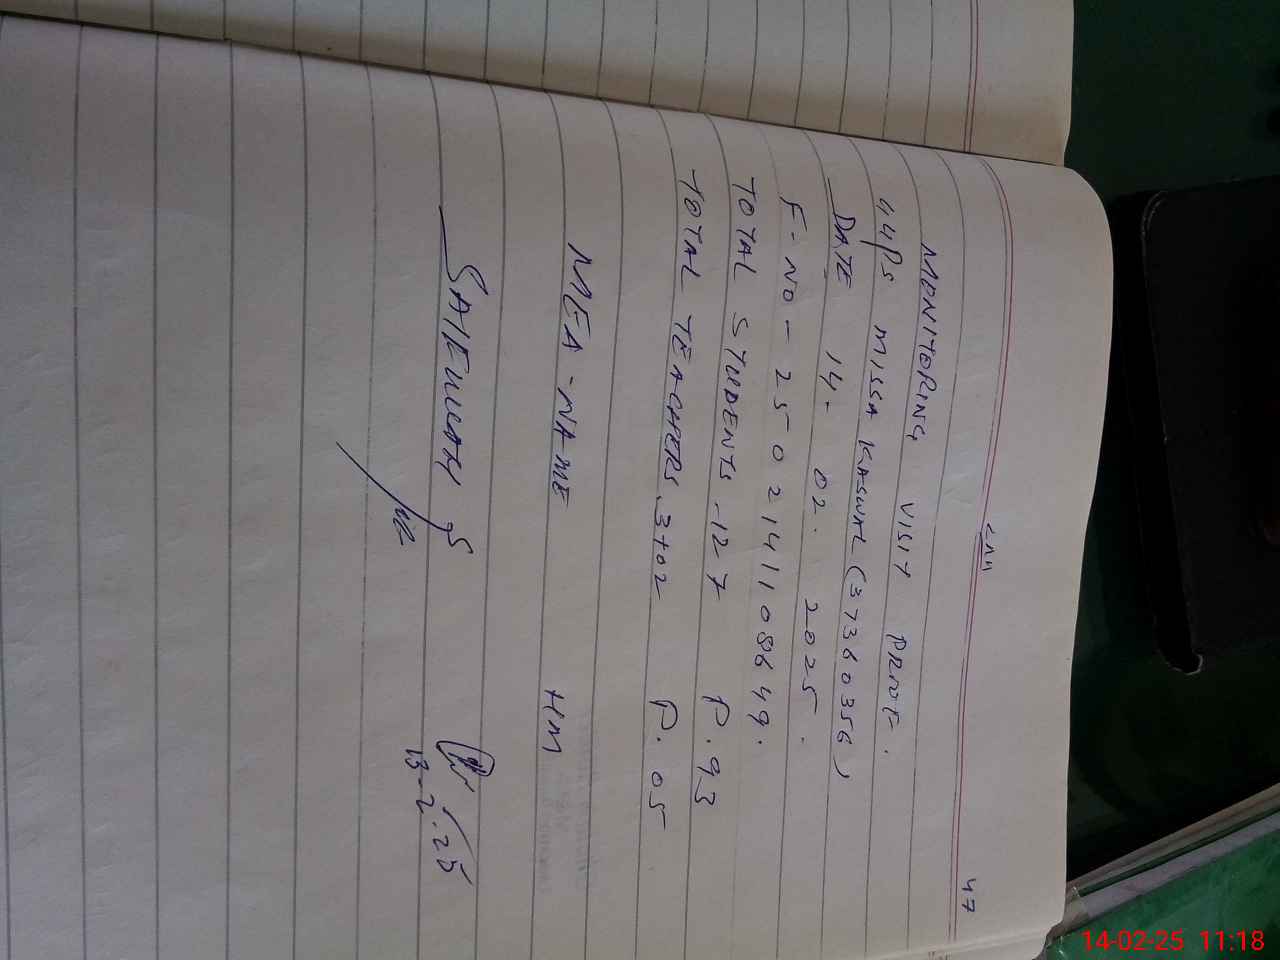 47
MONITORING VISIT PROOF.
GGPS MISSA KASWAL (37360356)
DATE 14. 02. 2025.
F-NO - 2502141108649.
TOTAL STUDENTS - 127 P. 93
TOTAL TEACHERS 3+02 P. 05
MEA - NAME HM
13-2-25
14-02-25 11:18